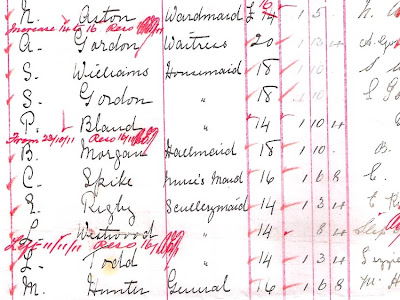 N. Aston Wardmaid £ 14 16 1 5
Increase 14 to 16 Reso
A. Gordon Waitress 20 1 13 4 A. Gor
S. Williams Housemaid 18 1 10 S.
S. Gordon " 18 1 10 S. Go
P. Bland " 14 1 10 4
From 23/10/11 Reso 16/11/11
B. Morgan Hallmaid 18 1 10 B.
C. Spike Nurse's Maid 16 1 6 8 C.
E. Rigby Scullerymaid 14 1 3 4 E R
L. Westwood " 14 8 4
Left 11/11/11 Reso 16/
L. Todd " 14 1 3 4 Lizzie
M. Hunter General 16 1 6 8 M. H